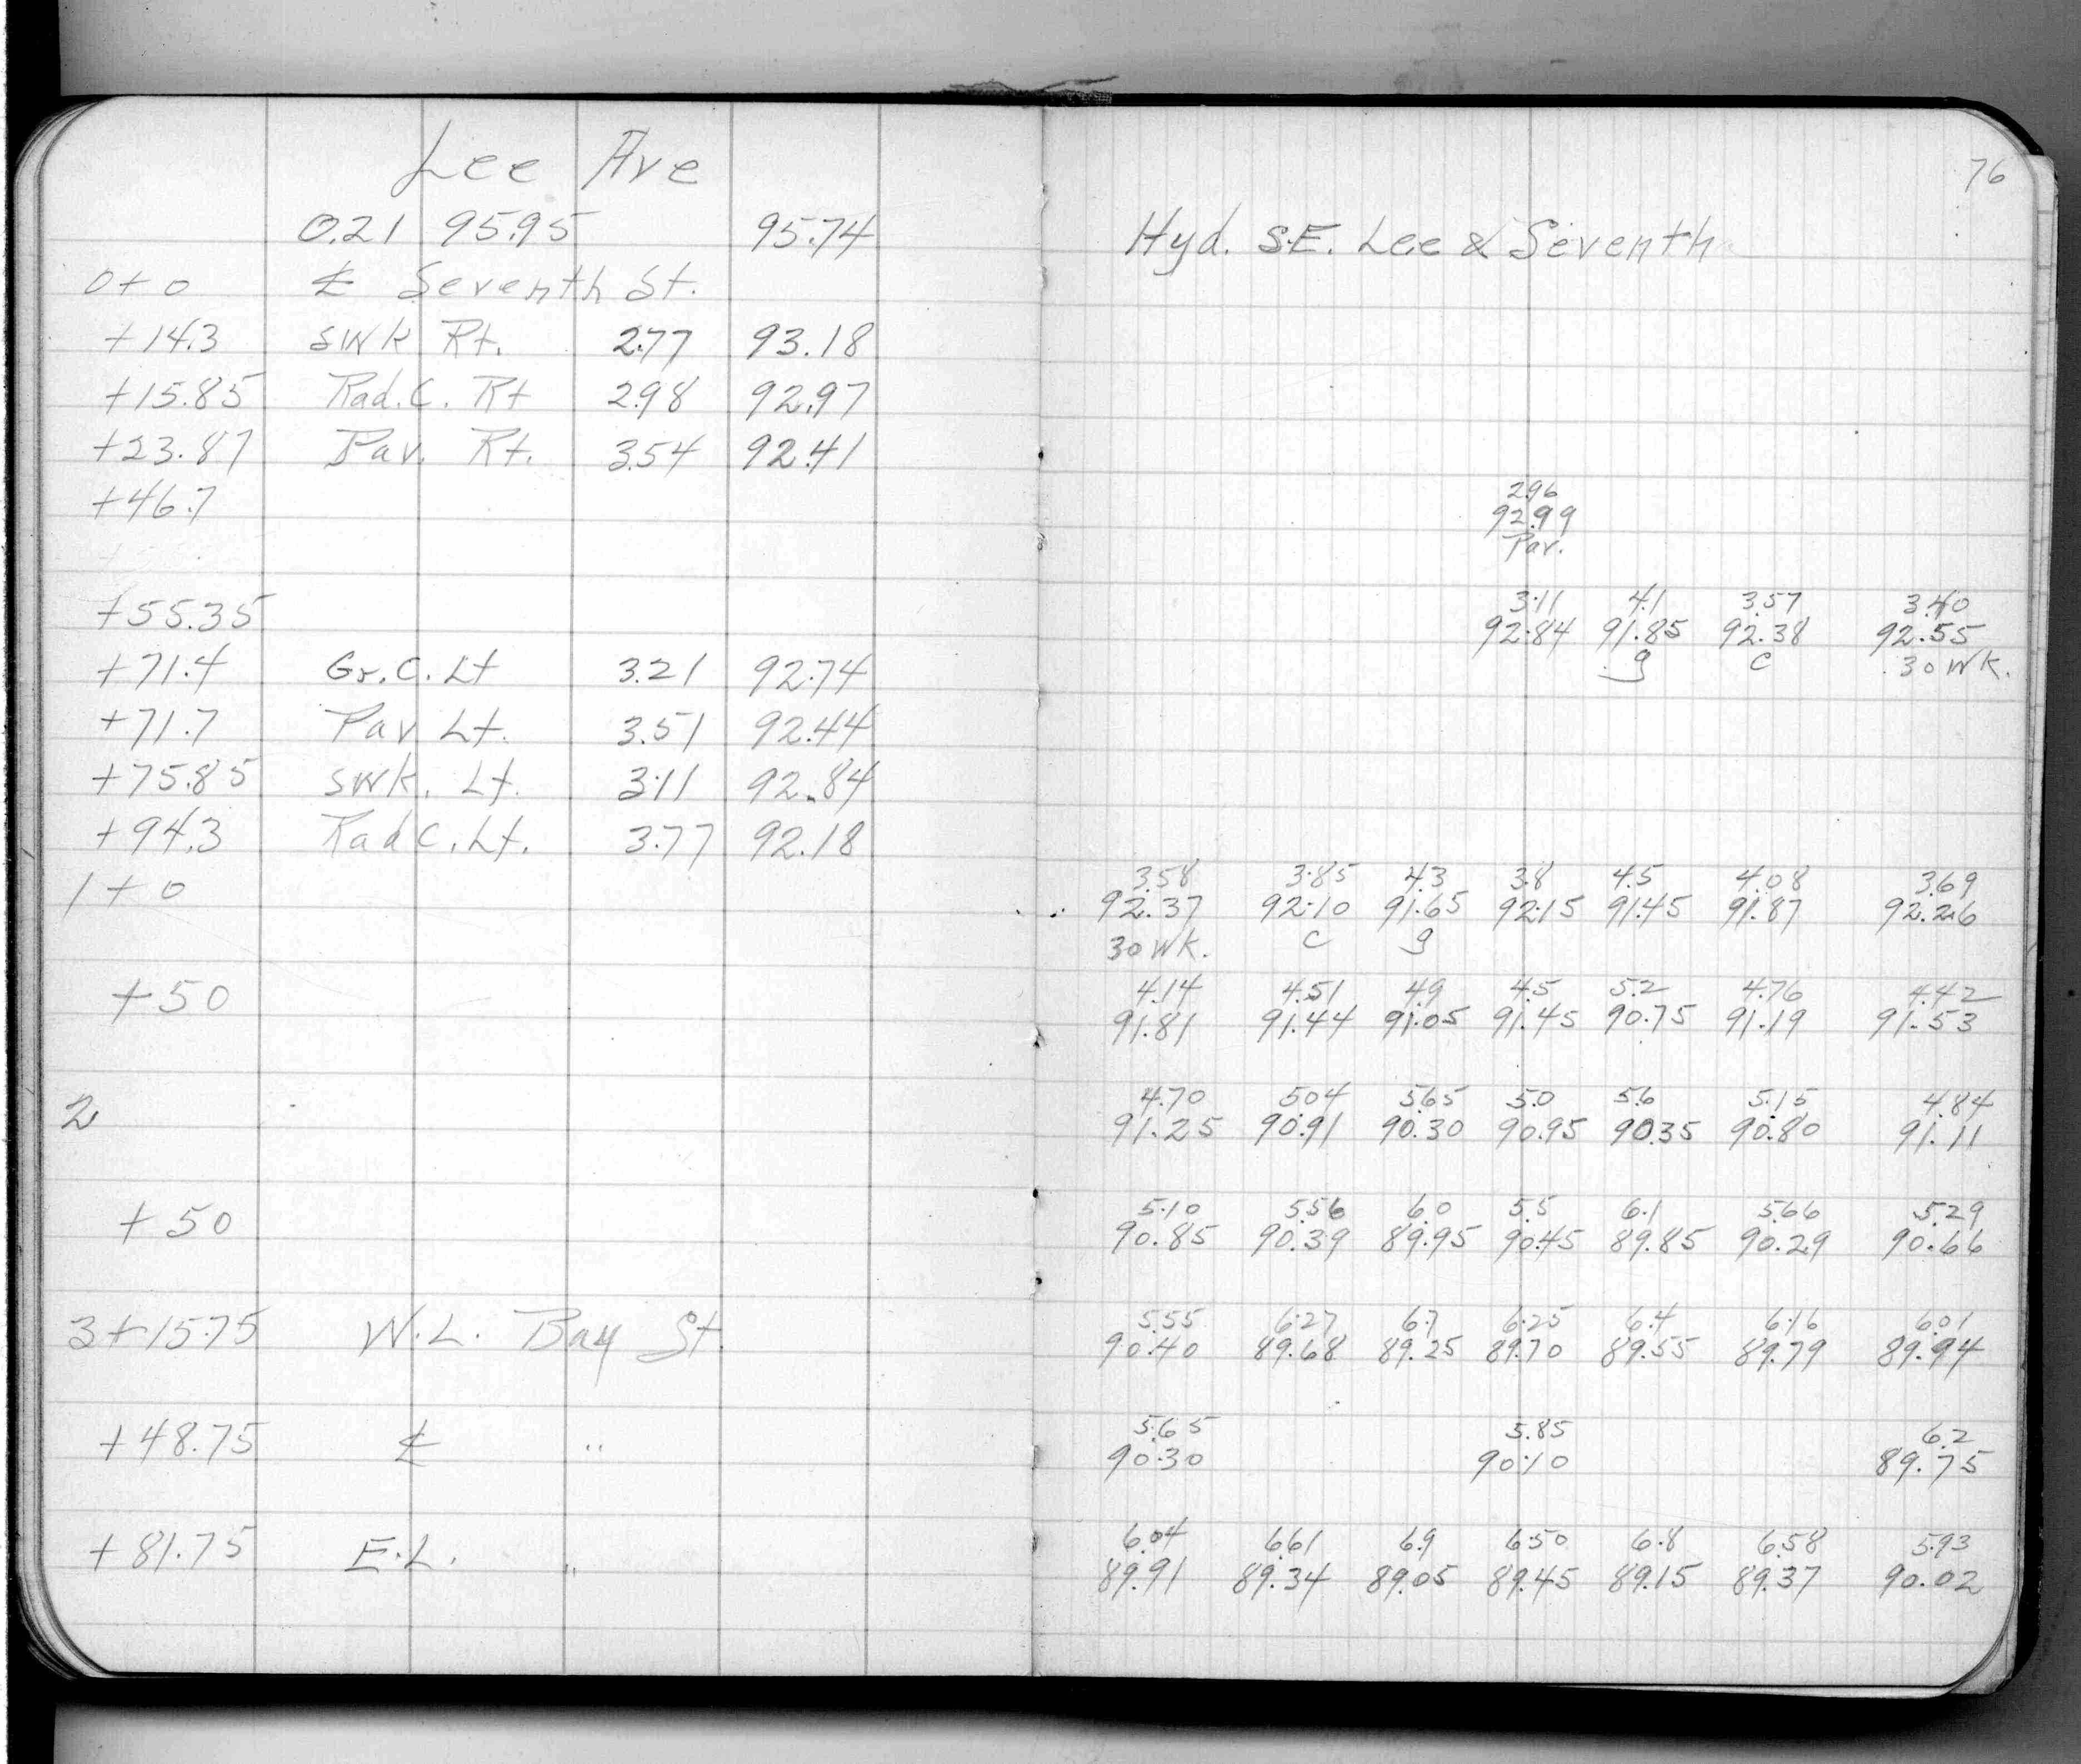 Lee Ave
0.21 95.95 95.74
0+0 ℄ Seventh St.
+14.3 SWK Rt. 2.77 93.18
+15.85 Rad. C. Rt 2.98 92.97
+23.87 Pav. Rt. 3.54 92.41
+46.7
+55.35
+71.4 Gr. C. Lt 3.21 92.74
+71.7 Pav Lt. 3.51 92.44
+75.85 SWK. Lt. 3.11 92.84
+94.3 Rad C. Lt. 3.77 92.18
1+0
+50
2
+50
3+15.75 W.L. Bay St.
+48.75 ℄ "
+81.75 E.L. "
76
Hyd. S.E. Lee & Seventh
2.96
92.99
Pav.
3.11 4.1 3.57 3.40
92.84 91.85 92.38 92.55
g c 30 WK.
3.58 3.85 4.3 3.8 4.5 4.08 3.69
92.37 92.10 91.65 92.15 91.45 91.87 92.26
30 WK. c g
4.14 4.51 4.9 4.5 5.2 4.76 4.42
91.81 91.44 91.05 91.45 90.75 91.19 91.53
4.70 5.04 5.65 5.0 5.6 5.15 4.84
91.25 90.91 90.30 90.95 90.35 90.80 91.11
5.10 5.56 6.0 5.5 6.1 5.66 5.29
90.85 90.39 89.95 90.45 89.85 90.29 90.66
5.55 6.27 6.7 6.25 6.4 6.16 6.01
90.40 89.68 89.25 89.70 89.55 89.79 89.94
5.65 5.85 6.2
90.30 90.10 89.75
6.04 6.61 6.9 6.50 6.8 6.58 5.93
89.91 89.34 89.05 89.45 89.15 89.37 90.02